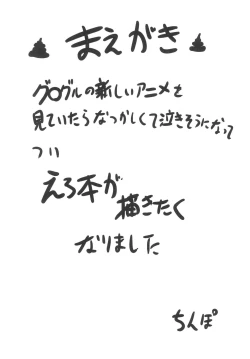 まえがき
グログルの新しいアニメを
見ていたらなつかしくて泣きそうになって
つい
えろ本が
描きたく
なりました
ちんぽ